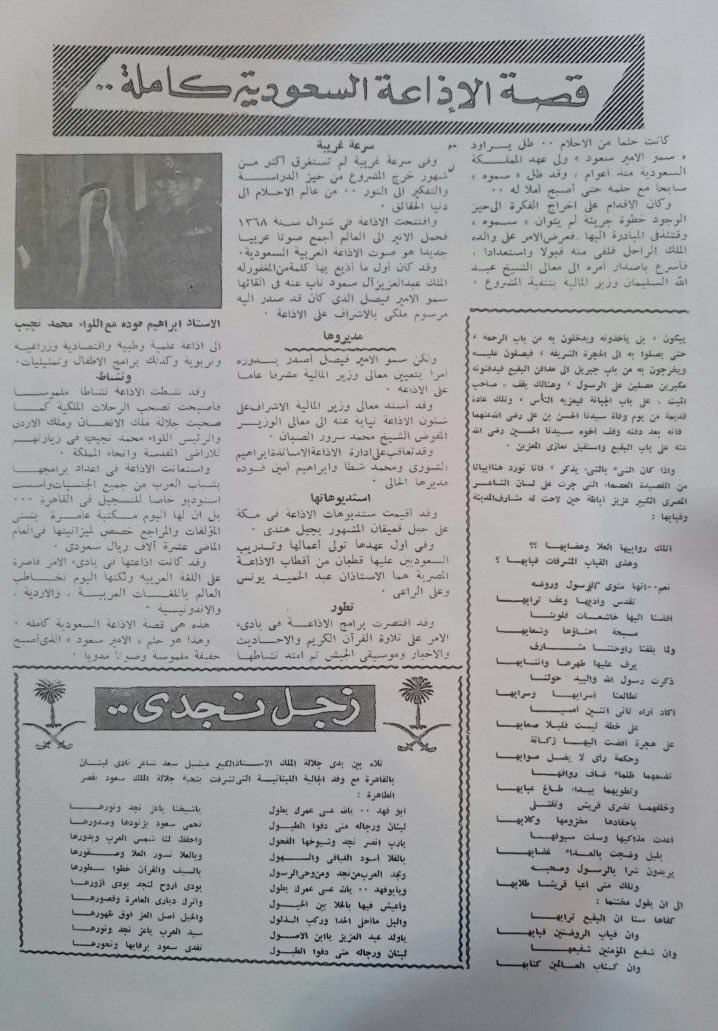 قصة الإذاعة السعودية كاملة ..
كانت حلما من الاحلام ٠٠ ظل يراود
« سمو الامير سعود » ولى عهد المملكة
السعودية منذ أعوام ، وقد ظل « سموه »
سابحا مع حلمه حتى أصبح أملا له ٠٠
وكان الاقدام على اخراج الفكرة الى حيز
الوجود خطوة جريئة لم يتوان « سموه »
وقتئذ فى المبادرة اليها . فعرض الامر على والده
الملك الراحل فلقى منه قبولا واستعدادا ،
فأسرع بأصدار أمره الى معالى الشيخ عبد
الله السليمان وزير المالية بتنفيذ المشروع .
سرعة غريبة
وفى سرعة غريبة لم تستغرق أكثر من
شهور خرج المشروع من حيز الدراسة
والتفكير الى النور ٠٠ من عالم الاحلام الى
دنيا الحقائق .
وافتتحت الاذاعة فى شوال سنة ١٣٦٨
فحمل الاثير الى العالم أجمع صوتا عربيا
جديدا هو صوت الاذاعة العربية السعودية .
وقد كان أول ما أذيع بها كلمة من المغفور له
الملك عبد العزيز آل سعود ناب عنه فى القائها
سمو الامير فيصل الذى كان قد صدر اليه
مرسوم ملكى بالاشراف على الاذاعة .
مديروها
ولكن سمو الامير فيصل أصدر بدوره
أمرا بتعيين معالى وزير المالية مشرفا عاما
على الاذاعة .
وقد أسند معالى وزير المالية الاشراف على
شئون الاذاعة نيابة عنه الى معالى الوزير
المفوض الشيخ محمد سرور الصبان .
وقد تعاقب على ادارة الاذاعة الاساتذة ابراهيم
الشورى ومحمد شطا وابراهيم أمين فوده
مديرها الحالى .
استديوهاتها
وقد أقيمت ستديوهات الاذاعة فى مكة
على جبل قعيقعان المشهور بجبل هندى .
وفى أول عهدها تولى أعمالها وتدريب
السعوديين عليها قطبان من أقطاب الاذاعة
المصرية هما الاستاذان عبد الحميد يونس
وعلى الراعى .
تطور
وقد اقتصرت برامج الاذاعة فى بادىء
الامر على تلاوة القرآن الكريم والاحاديث
والاخبار وموسيقى الجيش ثم امتد نشاطها
الاستاذ ابراهيم فوده مع اللواء محمد نجيب
الى اذاعة علمية وطبية واقتصادية وزراعية
وتربوية وكذلك برامج الاطفال وتمثيليات .
ونشاط
وقد نشطت الاذاعة نشاطا ملموسا
فأصبحت تصحب الرحلات الملكية كما
صحبت جلالة ملك الافغان وملك الاردن
والرئيس اللواء محمد نجيب فى زيارتهم
للاراضى المقدسة وانحاء المملكة .
واستعانت الاذاعة فى اعداد برامجها
بشباب العرب من جميع الجنسيات وأسست
استوديو خاصا للتسجيل فى القاهرة ٠٠٠
بل ان لها اليوم مكتبة عامرة بشتى
المؤلفات والمراجع خصص لميزانيتها فى العام
الماضى عشرة آلاف ريال سعودى .
وقد كانت اذاعتها فى بادىء الامر قاصرة
على اللغة العربية ولكنها اليوم تخاطب
العالم باللغات العربية ، والاردية ،
والاندونيسية .
هذه هى قصة الاذاعة السعودية كاملة .
وهذا هو حلم « الامير سعود » الذى أصبح
حقيقة ملموسة وصوتا مدويا .
يبكون ، بل ياخذونه ويدخلون به من باب الرحمة ،
حتى يصلوا به الى الحجرة الشريفة ، فيصلون عليه
ويخرجون به من باب جبريل الى مدافن البقيع فيدفنونه
مكبرين مصلين على الرسول ، وهنالك يقف صاحب
الميت ، على باب الجبانة فيعزيه الناس ، وتلك عادة
قديمة من يوم وفاة سيدنا الحسن بن على رضى الله عنهما
فانه بعد دفنه وقف أخوه سيدنا الحسين رضى الله
عنه على باب البقيع واستقبل تعازى المعزين .
واذا كان الشىء بالشىء يذكر ، فانا نورد هنا أبياتا
من القصيدة العصماء التى جرت على لسان الشاعر
المصرى الكبير عزيز أباظة حين لاحت له مشارف المدينة
وقبابها :
اتلك روابيها العلا وهضابها ؟؟
وهذى القباب المشرقات قبابها ؟
نعم ٠٠ انها مثوى الرسول وروضه
تقدس واديها وعف ترابها
أفضنا اليها خاشعات قلوبنا
مسبحة أحناؤها وشعابها
ولما بلغنا راوحتنا مشارف
يرف عليها طهرها وانتسابها
ذكرت رسول الله والبيد حولنا
تطالعنا أسرابها وسرابها
أكاد أراه ثانى اثنين أمسيا
على خطة ليست قليلا صعابها
على هجرة أفضت اليها زكانة
وحكمة رأى لا يضل صوابها
تضمهما ظلماء ضاف رواقها
وتطويهما بيداء طاغ عبابها
وخلفهما تضرى قريش وتغتلى
بأحقادها مخزومها وكلابها
أعدت مذاكيها وسلت سيوفها
بليل وضجت بالعداء غضابها
يريدون شرا بالرسول وصحبه
وتلك منى أعيا قريشا طلابها
الى أن يقول مختتما :
كفاها سنا أن البقيع ترابها
وأن قباب الروضتين قبابها
وأن شفيع المؤمنين شفيعها
وأن كتاب العالمين كتابها
زجل نجدى ..
تلاه بين يدى جلالة الملك الاستاذ الكبير ميشيل سعد شاعر نادى لبنان
بالقاهرة مع وفد الجالية اللبنانية التى تشرفت بتحية جلالة الملك سعود بقصر
الطاهرة :
أبو فهد ٠٠ يالله عسى عمرك يطول
ياشيخنا ياعز نجد ونورها
لبنان ورجاله منى دقوا الطبول
تحمى سعود بزنودها وصدورها
يارب انصر نجد وشيوخها الفحول
واحفظ لنا شمس العرب وبدورها
بالفلا أسود الفيافى والسهول
وبالعلا نسور العلا وصقورها
ونجد العرب من نجد ومن وحى الرسول
بالسيف والقرآن خطوا سطورها
ويابو فهد ٠٠ يالله عسى عمرك يطول
بودى أروح لنجد بودى أزورها
وأعيش فيها بالخلا بين الخيول
وأترك ديارى العامرة وقصورها
والليل ماأحلى الحدا وركب الذلول
والخيل أصل العز فوق ظهورها
ياولد عبد العزيز ياابن الاصول
سيد العرب ياعز نجد ونورها
لبنان ورجاله منى دقوا الطبول
تفدى سعود برقابها ونحورها